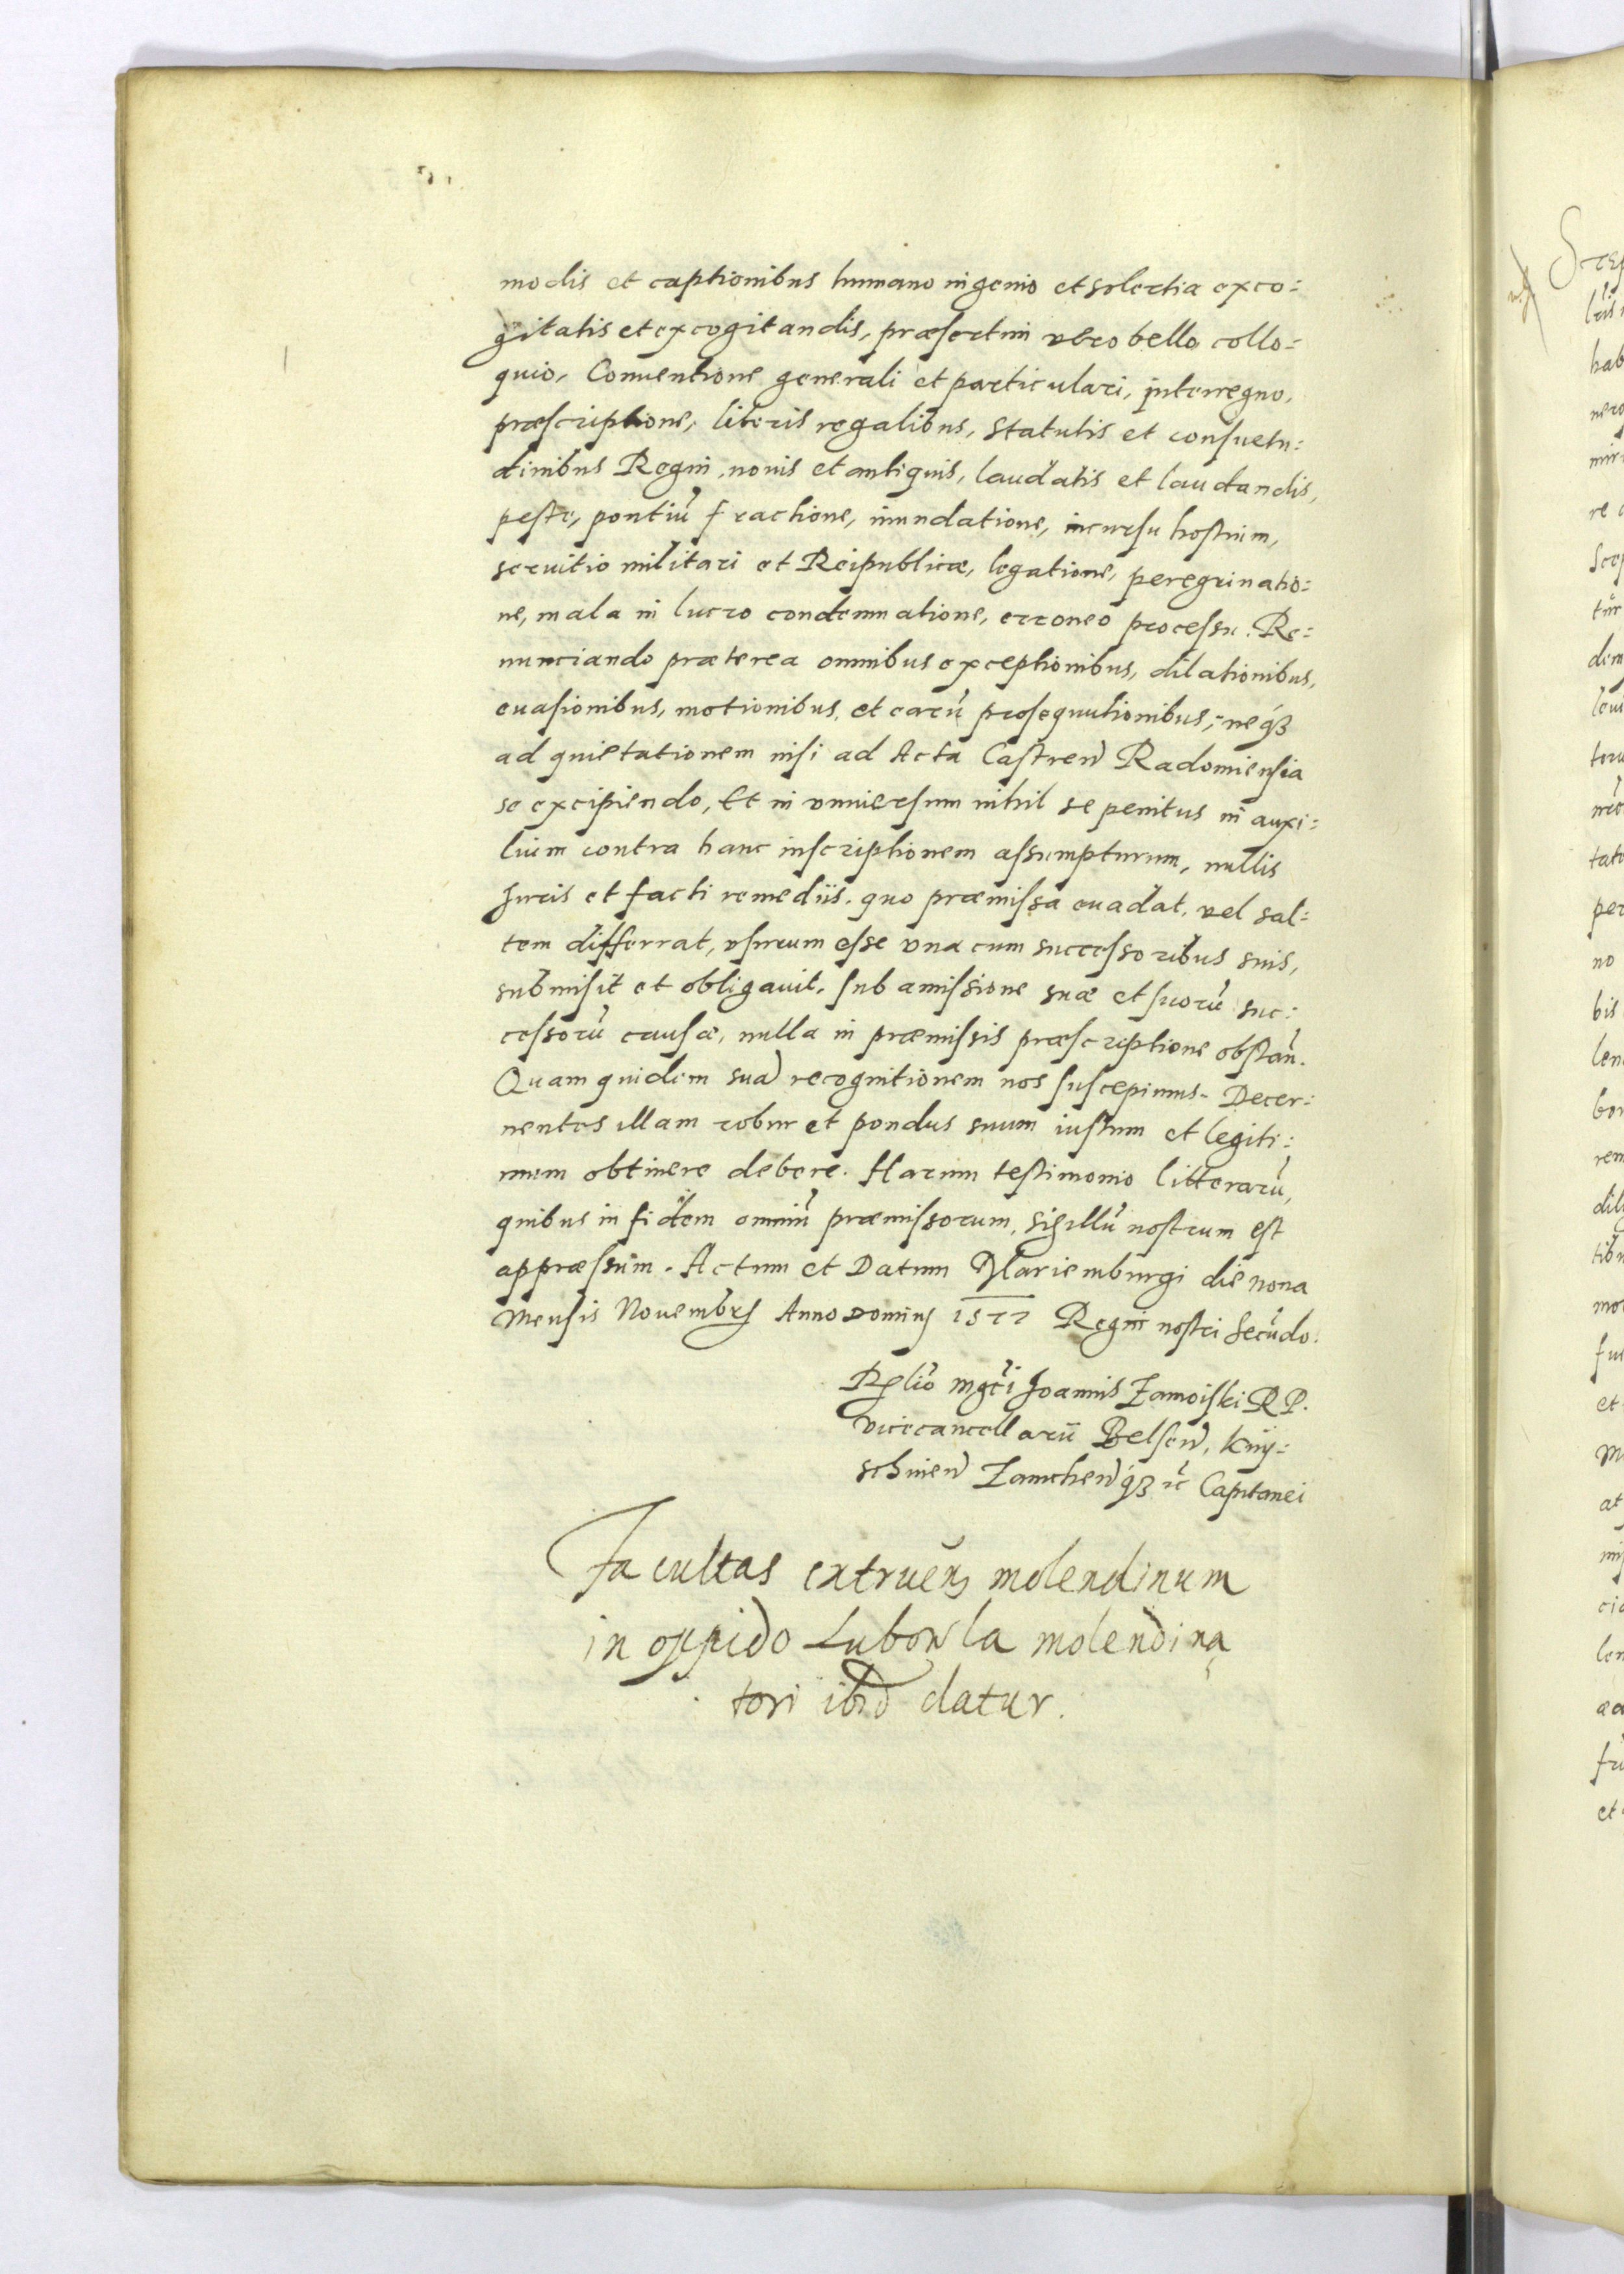 modis et captionibus humano ingenio et solertia exco=
gitatis et excogitandis, præsertim vero bello collo=
quio, Conuentione generali et particulari, interregno,
præscriptione, literis regalibus, statutis et consuetu=
dinibus Regni, nouis et antiquis, laudatis et laudandis,
peste, pontiũ fractione, inundatione, incursu hostium,
seruitio militari et Reipublicæ, legatione, peregrinatio=
ne, mala in lucro condemnatione, erroneo processu. Re=
nunciando præterea omnibus exceptionibus, dilationibus,
euasionibus, motionibus, et earũ prosequutionibus, neqȝ
ad quietationem nisi ad Acta Castren̄ Radomiensia
se excipiendo, Et in vniuersum nihil se penitus in auxi=
lium contra hanc inscriptionem assumpturum, nullis
Juris et facti remediis, quo præmissa euadat, vel sal=
tem differrat, vsurum esse vna cum successoribus suis,
submisit et obligauit, sub amissione suæ et suorũ suc=
cessorũ causæ, nulla in præmissis præscriptione obstan̄.
Quam quidem suã recognitionem nos suscepimus. Decer=
nentes illam robur et pondus suum iustum et legiti=
mum obtinere debere. Harum testimonio litterarũ,
quibus in fidem omniũ præmissorum, sigillũ nostrum est
appræssum. Actum et Datum Mariemburgi die nona
Mensis Nouembrꝭ Anno Dominj 1577 Regni nostri secũdo.
Rꝑlio mgci Joannis Zamoiski R P.
vicecancellarii Belsen̄, Kny=
schinen̄ Zamchen̄qȝ ꝛc̃ Capitanei
Facultas extruen̄ molendinum
in oppido Lubowla molendina
tori ibid datur.